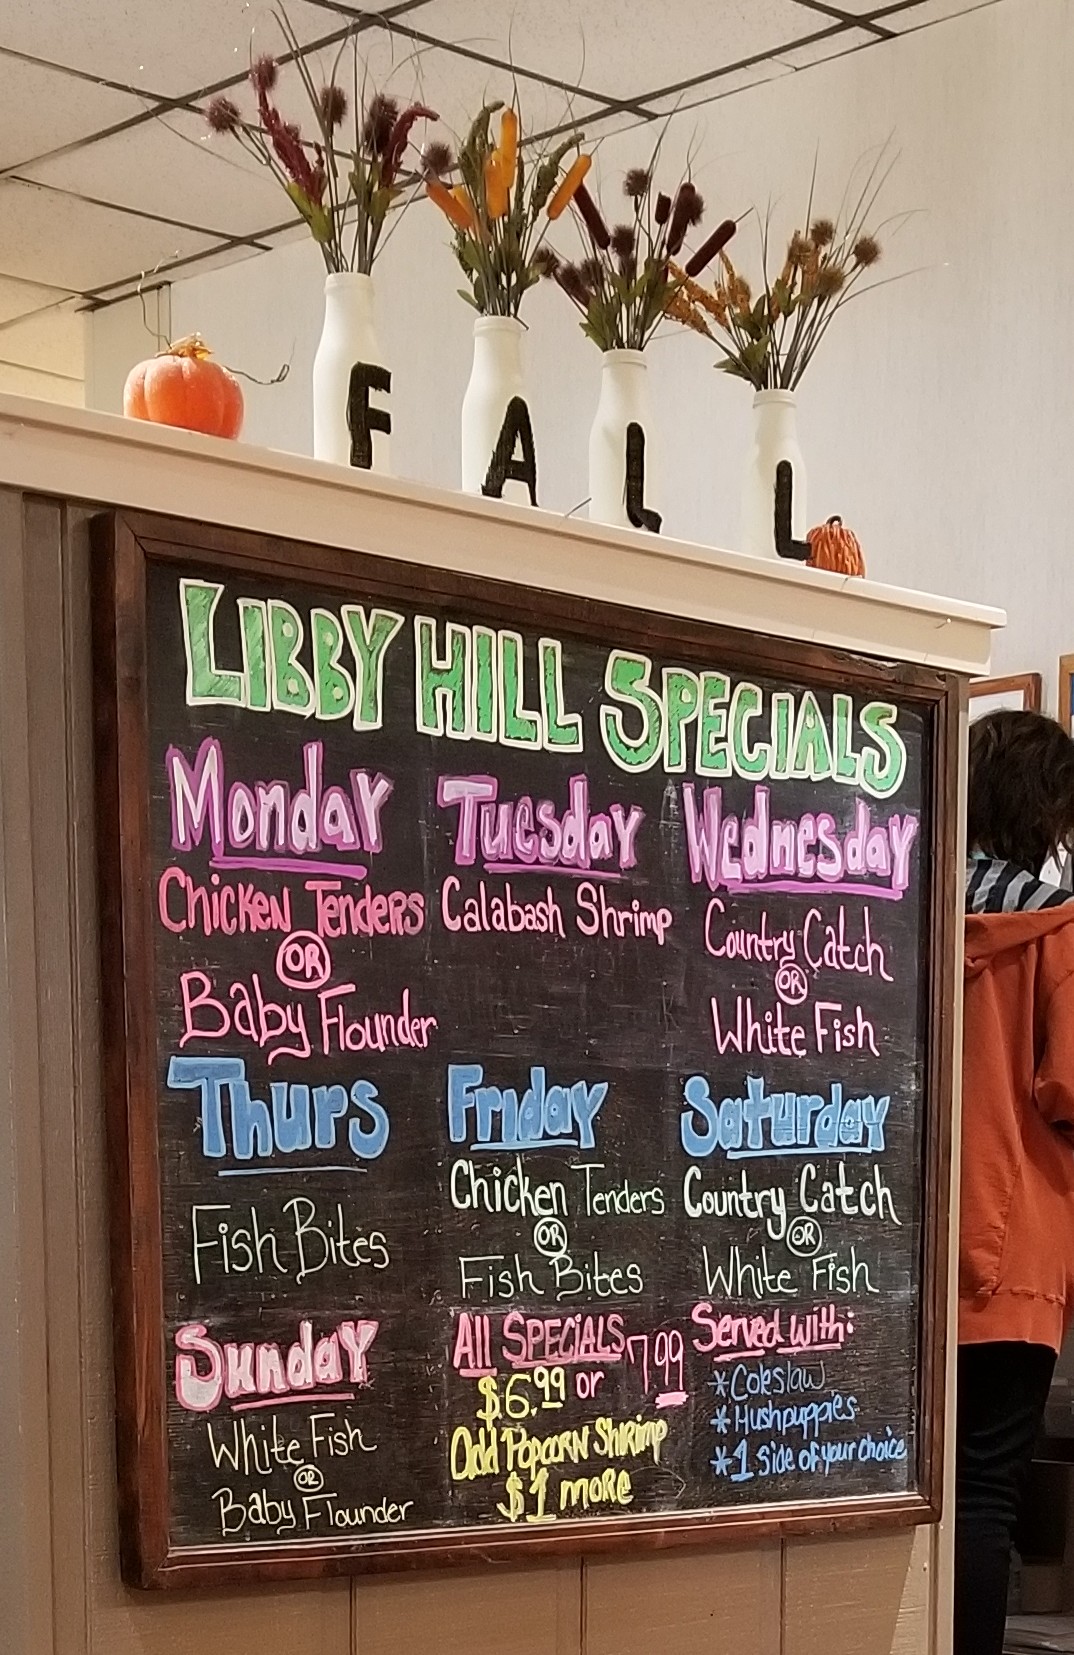 F A L L
LIBBY HILL SPECIALS
Monday
Chicken Tenders
OR
Baby Flounder
Tuesday
Calabash Shrimp
Wednesday
Country Catch
OR
White Fish
Thurs
Fish Bites
Friday
Chicken Tenders
OR
Fish Bites
Saturday
Country Catch
OR
White Fish
Sunday
White Fish
OR
Baby Flounder
All SPECIALS
$6.99 or 7.99
Add Popcorn Shrimp
$1 more
Served with:
*Coleslaw
*Hushpuppies
*1 side of your choice